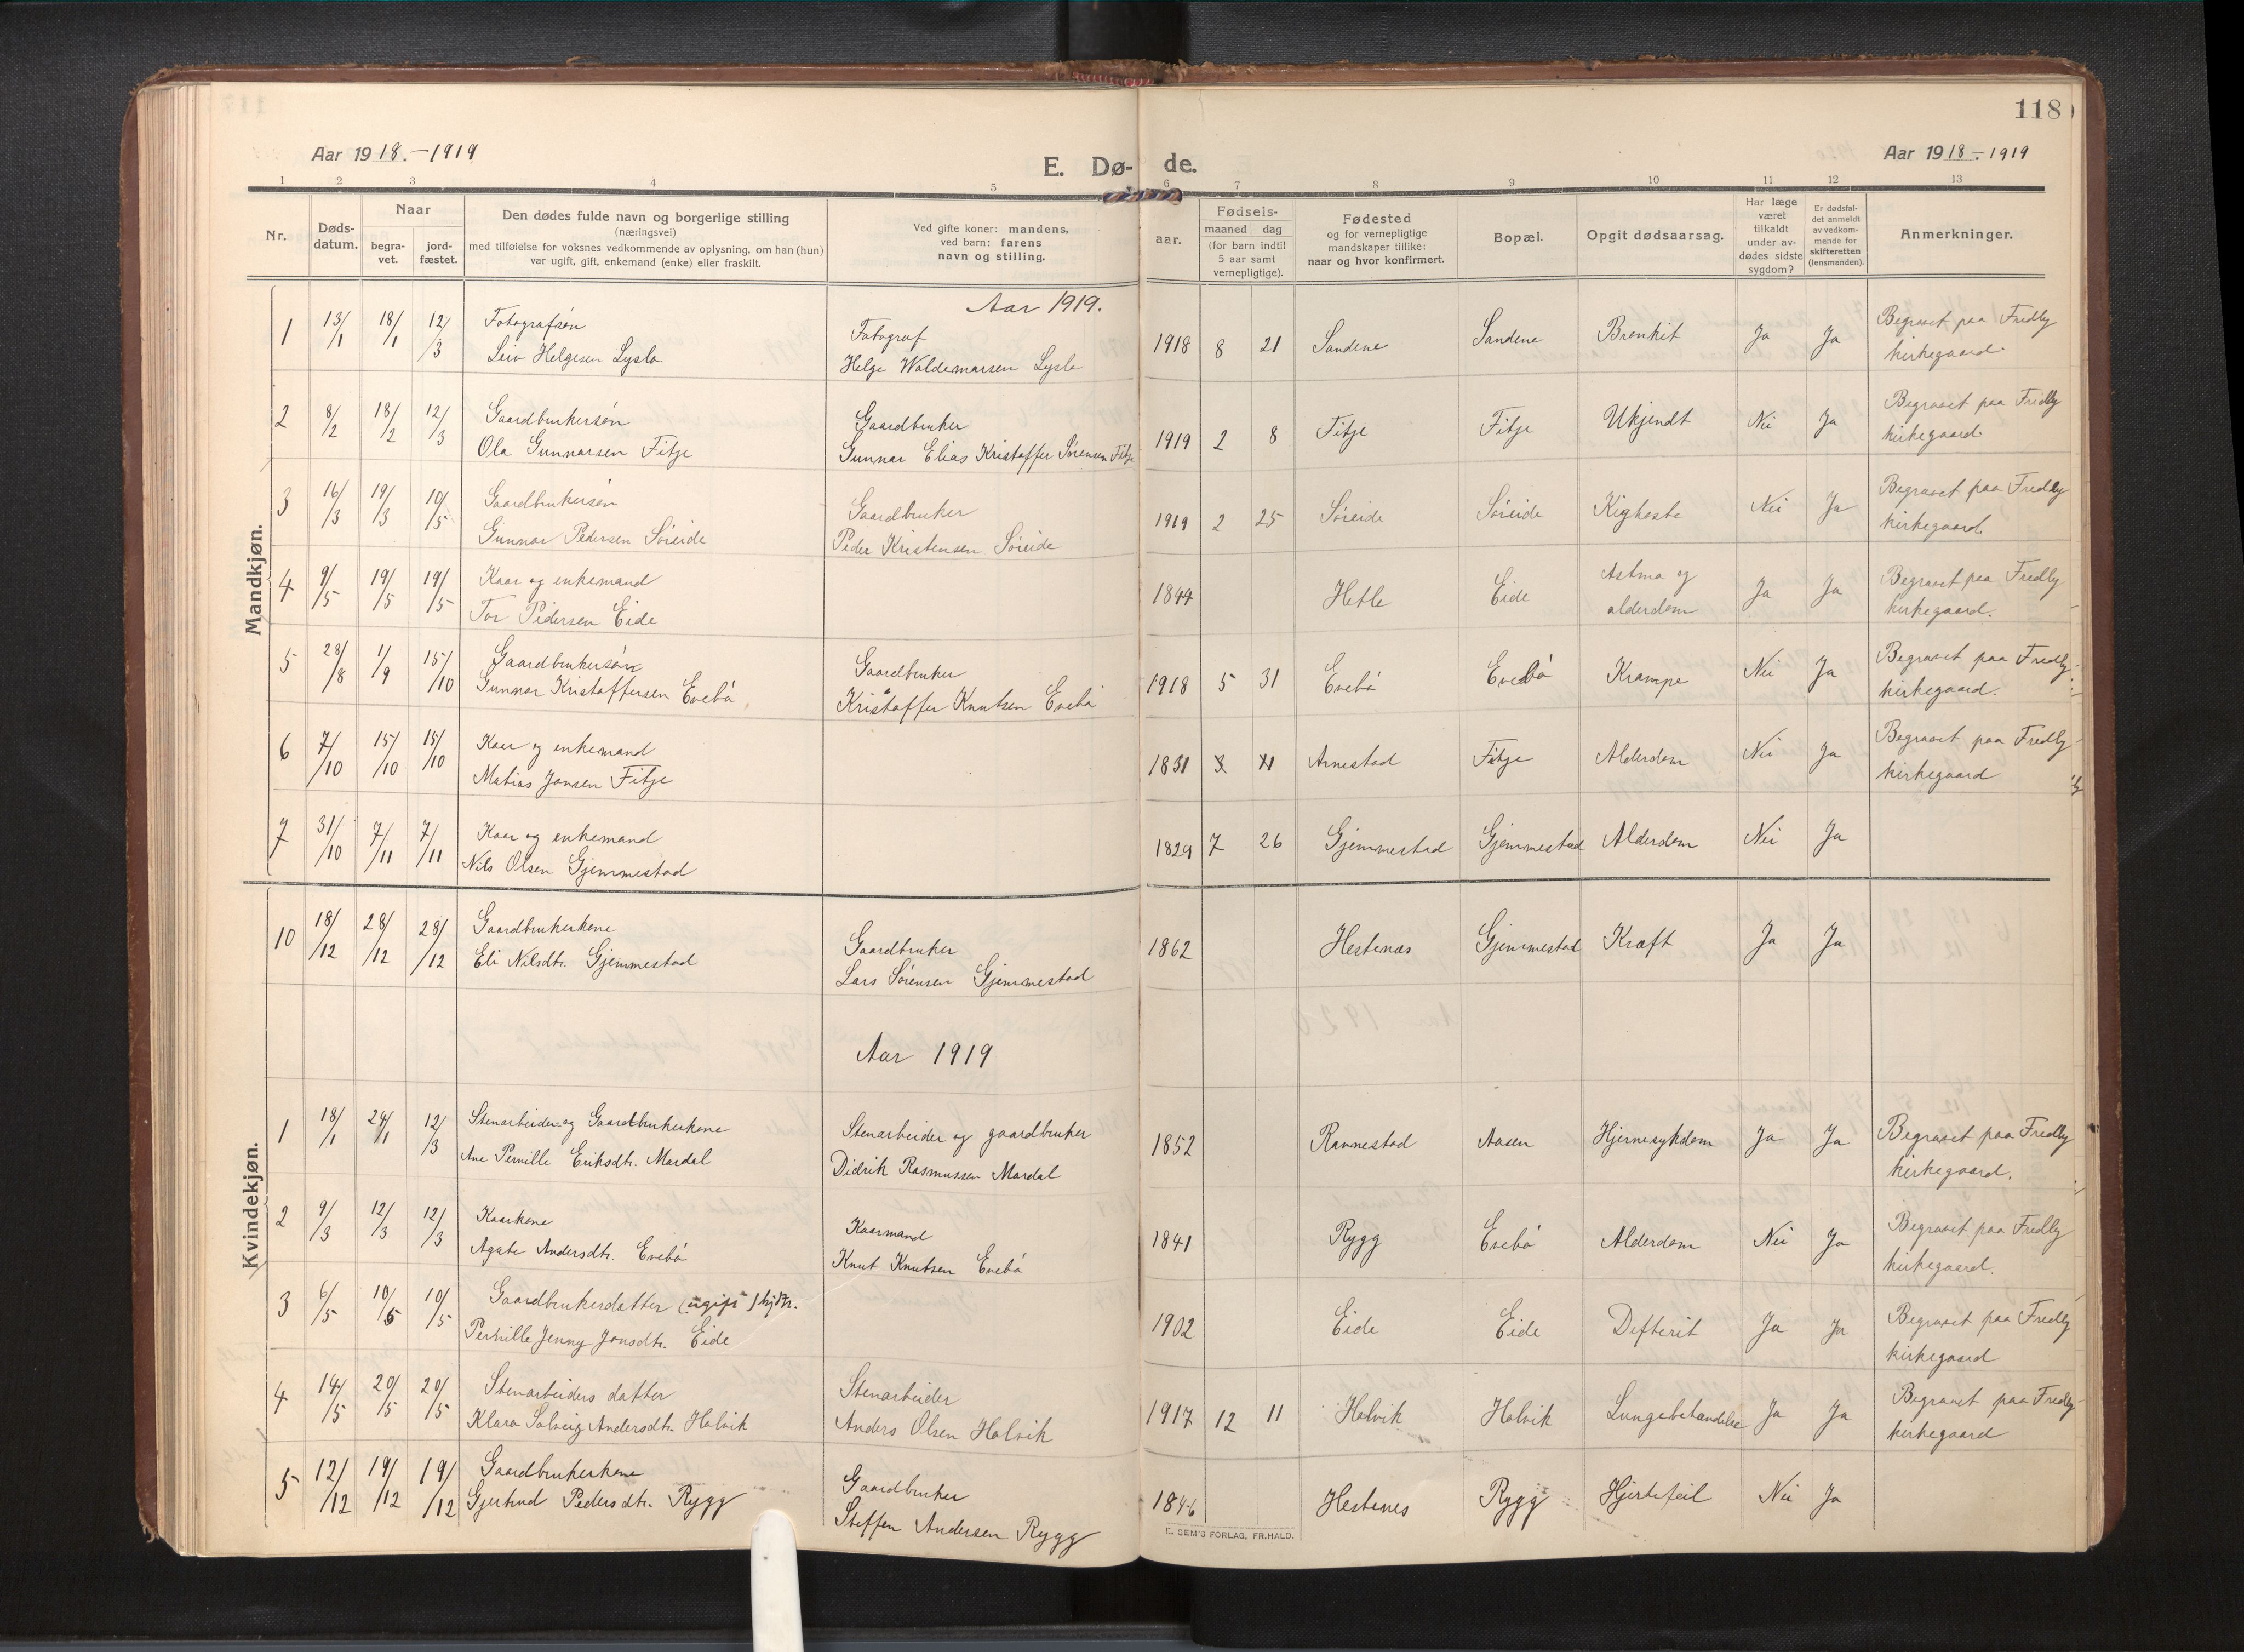 118
Aar 1918.-1919
E. Dø-de.
Aar 1918-1919
1 2 3 4 5 6 7 8 9 10 11 12 13
Nr.
Døds-datum.
Naar
begra-vet.
jord-fæstet.
Den dødes fulde navn og borgerlige stilling
(næringsvei)
med tilføielse for voksnes vedkommende av oplysning, om han (hun)
var ugift, gift, enkemand (enke) eller fraskilt.
Ved gifte koner: mandens,
ved barn: farens
navn og stilling.
Fødsels-
aar.
maaned dag
(for barn indtil
5 aar samt
vernepligtige).
Fødested
og for vernepligtige
mandskaper tillike:
naar og hvor konfirmert.
Bopæl.
Opgit dødsaarsag.
Har læge
været
tilkaldt
under av-
dødes sidste
sygdom?
Er dødsfal-
det anmeldt
av vedkom-
mende for
skifteretten
(lensmanden).
Anmerkninger.
Mandkjøn.
Aar 1919.
1 13/1 18/1 12/3 Fotografsøn
Leiv Helgesen Lysla
Fotograf
Helge Waldemarsen Lysla
1918 8 21 Sandene Sandene Bronkit Ja Ja Begravet paa Fredly
kirkegaard.
2 8/2 18/2 12/3 Gaardbrukersøn
Ola Gunnarsen Fitje
Gaardbruker
Gunnar Elias Kristoffer Sørensen Fitje
1919 2 8 Fitje Fitje Ukjendt Nei Ja Begravet paa Fredly
kirkegaard.
3 16/3 19/3 10/5 Gaardbrukersøn
Gunnar Pedersen Søreide
Gaardbruker
Peder Kristensen Søreide
1919 2 25 Søreide Søreide Kighoste Nei Ja Begravet paa Fredly
kirkegaard
4 9/5 19/5 19/5 Kaar og enkemand
Tor Pedersen Eide
1844 Hetle Eide Astma og
alderdom Ja Ja Begravet paa Fredly
kirkegaard.
5 28/8 1/9 15/10 Gaardbrukersøn
Gunnar Kristoffersen Evebø
Gaardbruker
Kristoffer Knutsen Evebø
1918 5 31 Evebø Evebø Krampe Nei Ja Begravet paa Fredly
kirkegaard.
6 7/10 15/10 15/10 Kaar og enkemand
Matias Jonsen Fitje
1831 Arnestad Fitje Alderdom Nei Ja Begravet paa Fredly
kirkegaard
7 31/10 7/11 7/11 Kaar og enkemand
Nils Olsen Gjemmestad
1829 7 26 Gjemmestad Gjemmestad Alderdom Nei Ja
Kvindekjøn.
10 18/12 28/12 28/12 Gaardbrukerkone
Eli Nilsdtr. Gjemmestad
Gaardbruker
Lars Sørensen Gjemmestad
1862 Hestenes Gjemmestad Kræft Ja Ja
Aar 1919
1 18/1 24/1 12/3 Stenarbeider- og Gaardbrukerkone
Ane Pernille Eriksdtr. Mardal
Stenarbeider og gaardbruker
Didrik Rasmussen Mardal
1852 Ravnestad Aasen Hjernesykdom Ja Ja Begravet paa Fredly
kirkegaard.
2 9/3 12/3 12/3 Kaarkone
Agate Andersdtr. Evebø
Kaarmand
Knut Knutsen Evebø
1841 Rygg Evebø Alderdom Nei Ja Begravet paa Fredly
kirkegaard.
3 6/5 10/5 10/5 Gaardbrukerdatter (ugift)
Pernille Jenny Jonsdtr. Eide
1902 Eide Eide Difterit Ja Ja Begravet paa Fredly
kirkegaard
4 14/5 20/5 20/5 Stenarbeiders datter
Klara Solveig Andersdtr. Holvik
Stenarbeider
Anders Olsen Holvik
1917 12 11 Holvik Holvik Lungebetændelse Ja Ja Begravet paa Fredly
kirkegaard
5 12/12 19/12 19/12 Gaardbrukerkone
Gjertrud Pedersdtr. Rygg
Gaardbruker
Steffen Andersen Rygg
1846 Hestenes Rygg Hjertefeil Nei Ja
E. SEM'S FORLAG, FR.HALD.